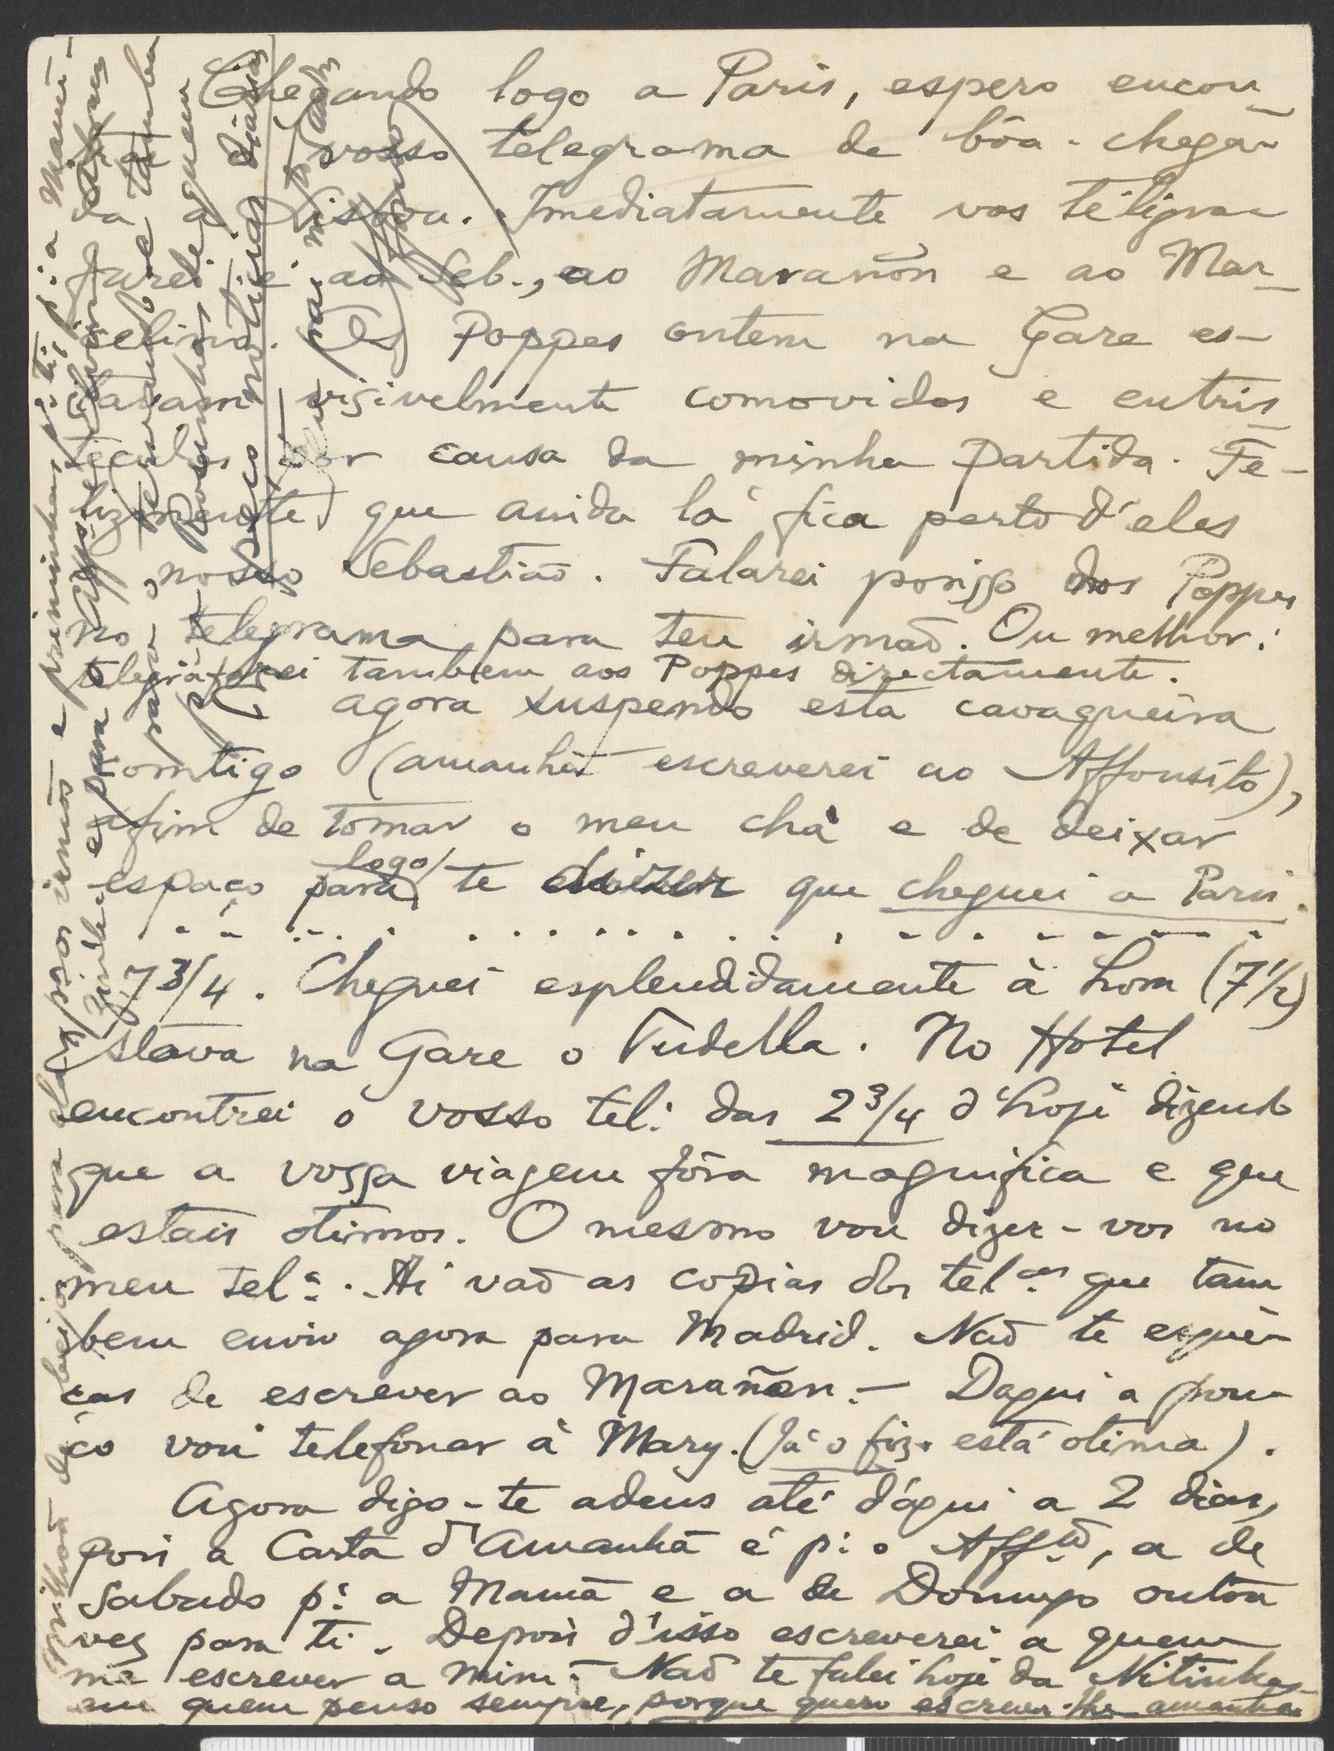 Chegando logo a Paris, espero encon-
tra o vosso telegrama de bôa-chegã-
da a Lisboa. Imediatamente vos teligra-
farei e ao Seb., ao Marañon e ao Mar-
celino. Os Poppes ontem na Gare es-
tavam visivelmente comovidos e entris-
tecidos por causa da minha partida. Fe-
lizmente que ainda lá fica perto d'eles
o nosso Sebastião. Falarei porisso dos Poppes
no telegrama para teu irmão. Ou melhor:
telegrafarei tambem aos Poppes directamente.
E agora suspendo esta cavaqueira
comtigo (amanhã escreverei ao Affonsito),
afim de tomar o meu chá e de deixar
espaço para logo te dizer que cheguei a Paris.
7 3/4. Cheguei esplendidamente à hora (7 1/2)
Stava na Gare o Tudella. No Hotel
encontrei o vosso tel: das 2 3/4 d'hoje dizendo
que a vossa viagem fôra magnifica e que
estais otimos. O mesmo vou dizer-vos no
meu telª. Ai vão as copias dos tel.as que tam
bem envio agora para Madrid. Não te esquê-
ças de escrever ao Marañon. — Daqui a pou-
co vou telefonar à Mary. (Já o fiz. está otima).
Agora digo-te adeus até d'aqui a 2 dias,
pois a Carta d'Amanhã é p: o Aff.to, a de
Sabado p: a Mamã e a de Domingo outra
vez para ti. Depois d'isso escreverei a quem
me escrever a mim. Não te falei hoje da Nitinha
em quem penso sempre, porque quero escrever-lhe amanhã
beijos para
e para
e tambem
Peço noticias diarias